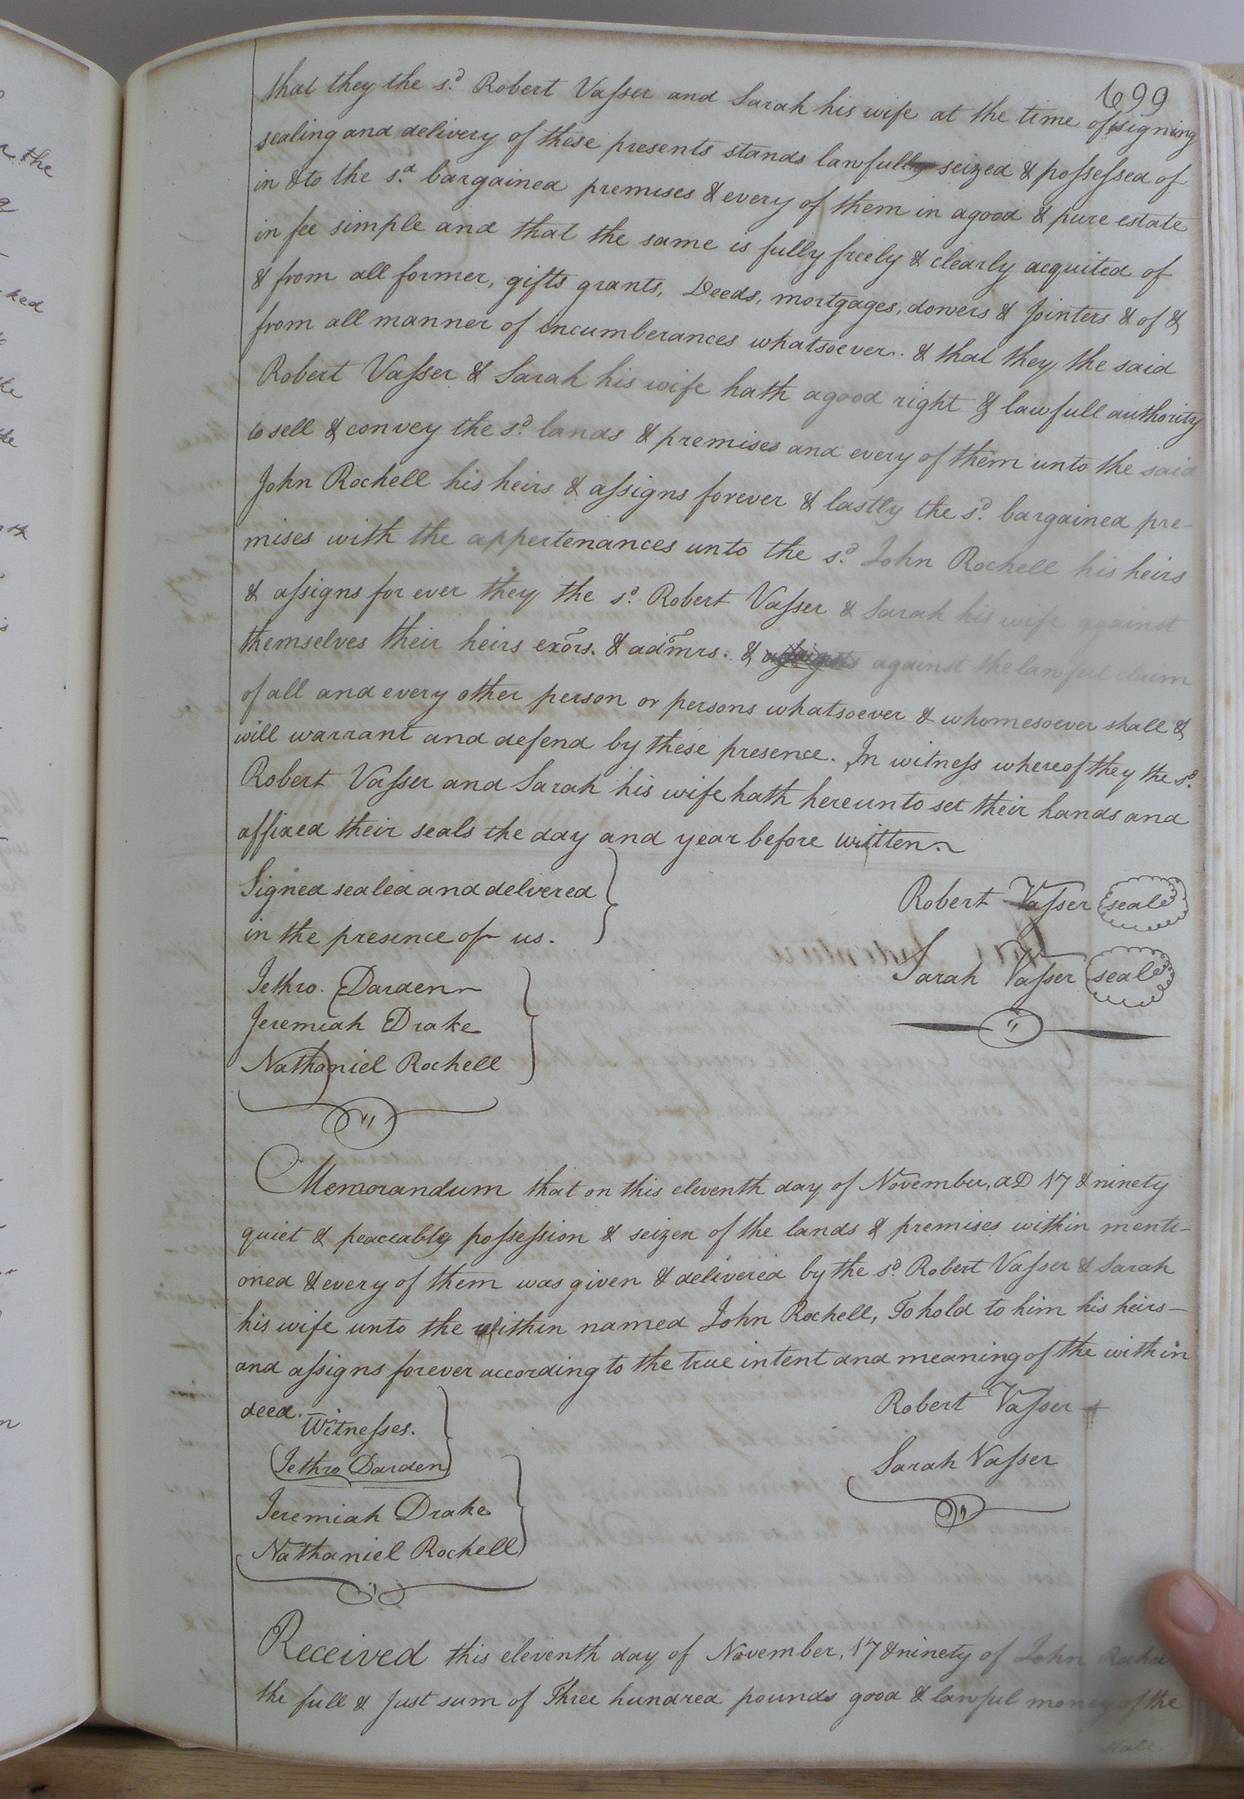 699
that they the s.d Robert Vaſser and Sarah his wife at the time of signing
sealing and delivery of these presents stands lawfully seized & poſseſsed of
in & to the s.d bargained premises & every of them in a good & pure estate
in fee simple and that the same is fully freely & clearly acquited of
& from all former, gifts grants, Deeds, mortgages, dowers & Jointers & of &
from all manner of incumberances whatsoever. & that they the said
Robert Vaſser & Sarah his wife hath a good right & lawfull authority
to sell & convey the s.d lands & premises and every of them unto the said
John Rochell his heirs & aſsigns forever & lastly the s.d bargained pre-
mises with the appertenances unto the s.d John Rochell his heirs
& aſsigns for ever they the s.d Robert Vaſser & Sarah his wife against
themselves their heirs exors. & admrs. & against the lawful claim
of all and every other person or persons whatsoever & whomesoever shall &
will warrant and defend by these presence. In witneſs whereof they the s.d
Robert Vaſser and Sarah his wife hath hereunto set their hands and
affixed their seals the day and year before written
Signed sealed and delivered
in the presence of us.
Robert Vaſser seale
Sarah Vaſser seale
Jethro. Darden
Jeremiah Drake
Nathaniel Rochell
Memorandum that on this eleventh day of November, AD 17 & ninety
quiet & peaceably poſseſsion & seizen of the lands & premises within menti-
oned & every of them was given & delivered by the s.d Robert Vaſser & Sarah
his wife unto the within named John Rochell, To hold to him his heirs
and aſsigns forever according to the true intent and meaning of the within
deed.
Witneſses.
Jethro Darden
Jeremiah Drake
Nathaniel Rochell
Robert Vaſser
Sarah Vaſser
Received this eleventh day of November, 17 & ninety of John
the full & Just sum of Three hundred pounds good & lawful money of the
state.